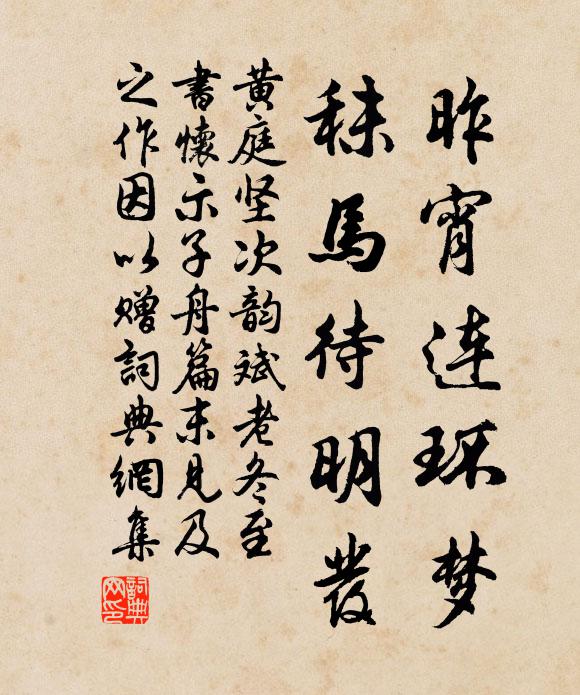 昨宵连环梦
秣馬待明發
黄庭坚次韵斌老冬至
書懷示子舟篇末見及
之作因以赠詞典網集
詞典
网印